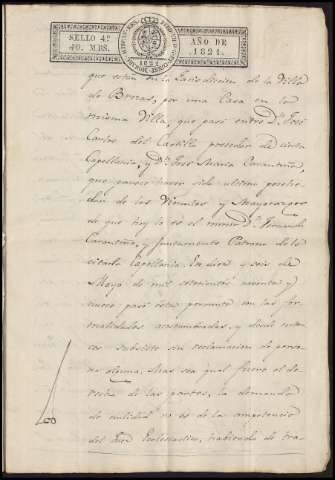 SELLO 4º
40. MRS.
AÑO DE
1821.
que están en la Jurisdiccion de la Villa
de Brozas, por una Casa en la
misma Villa, que pasó entre Dn José
Carlos del Castillo poseedor de cierta
Capellania, y Dn José Maria
que parece haver sido ultimo posehe-
dor de los Vinculos y Mayorazgos
de que hoy lo es el menor Dn Fernando
y juntamente Patrono de la
citada Capellania. En diez y seis de
Mayo de mil setecientos noventa y
nueve pasó este permuta con las for-
malidades acostumbradas, y desde enton-
ces subsiste sin reclamacion de perso-
na alguna. Mas sea qual fuere el de-
recho de las partes, la demanda
de nulidad no es de la competencia
del Juez Eclesiastico, habiendo de tra-